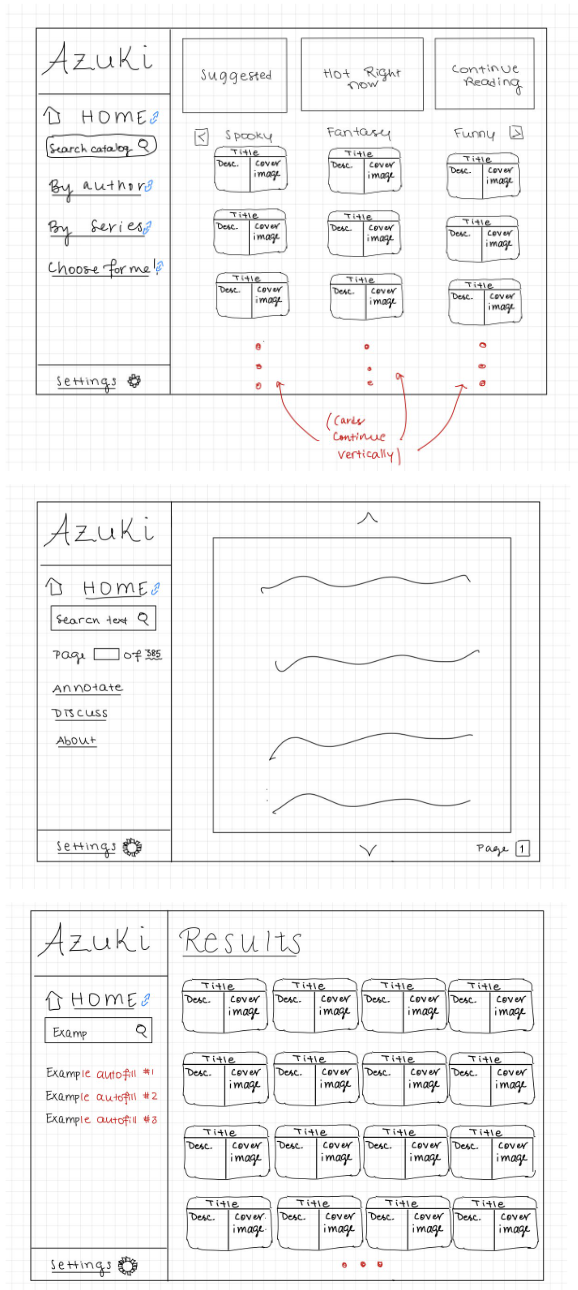 Azuki
HOME
Search catalog
By author
By Series
Choose for me!
Settings
Suggested
Hot Right
Now
Continue
Reading
<
Spooky
Fantasy
Funny
>
Title
Desc.
Cover
image
Title
Desc.
Cover
image
Title
Desc.
Cover
image
Title
Desc.
Cover
image
Title
Desc.
Cover
image
Title
Desc.
Cover
image
Title
Desc.
Cover
image
Title
Desc.
Cover
image
Title
Desc.
Cover
image
(Cards
Continue
vertically)
Azuki
HOME
Search text
Page of 385
Annotate
Discuss
About
Settings
Page 1
Azuki
HOME
Examp
Example autofill #1
Example autofill #2
Example autofill #3
Settings
Results
Title
Desc.
Cover
image
Title
Desc.
Cover
image
Title
Desc.
Cover
image
Title
Desc.
Cover
image
Title
Desc.
Cover
image
Title
Desc.
Cover
image
Title
Desc.
Cover
image
Title
Desc.
Cover
image
Title
Desc.
Cover
image
Title
Desc.
Cover
image
Title
Desc.
Cover
image
Title
Desc.
Cover
image
Title
Desc.
Cover
image
Title
Desc.
Cover
image
Title
Desc.
Cover
image
Title
Desc.
Cover
image